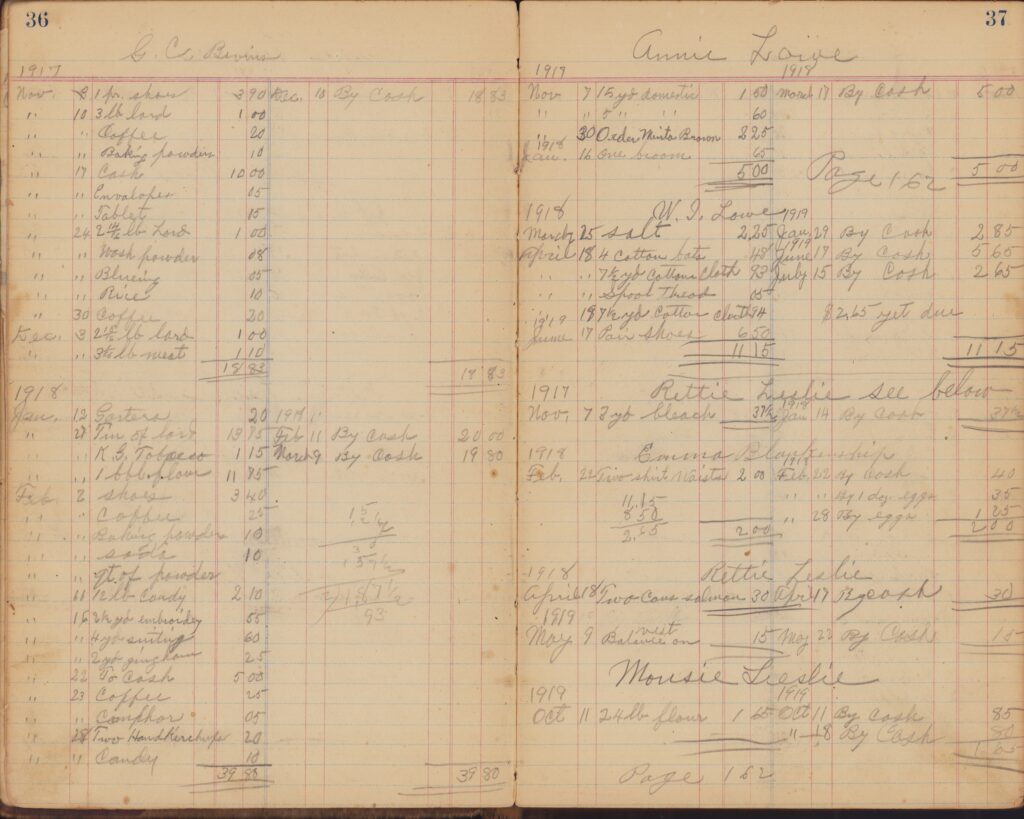 36
G. C. Bevins
1917
Nov. 8 1 pr. shoes 3 90 Dec. 10 By Cash 18 83
" 10 3 lb lard 1 00
" " Coffee 20
" " Baking powders 10
" 17 Cash 10 00
" " Envalopes 05
" " Tablet 15
" 24 lb Lard 1 00
" " Wash powder 08
" " Blueing 05
" " Rice 10
" 30 Coffee 20
Dec. 3 lb lard 1 00
" " lb meat 1 10
18 83 18 83
1918
Jan. 12 Garters 20 1918
" 27 Tin of lard 13 75 Feb 11 By Cash 20 00
" " Tobacco 1 15 March 9 By Cash 19 80
" " 1 bbl. flour 11 85
Feb 2 Shoes 3 40
" " Coffee 25
" " Baking powder 10
" " Soda 10
" " qt. of powder
" 11 lb Candy 2 10
" 15 2½ yd embroidey 05
" " 4 yd suiting 60
" " 2 yd gingham 25
" 22 To Cash 5 00
" 23 Coffee 25
" " Camphor 05
" 28 Two Handkerchiefs 20
" " Candy 10
39 80 39 80
37
Annie Lowe
1917 1918
Nov 7 15 yd domestic 1 50 March 17 By Cash 5 00
" " 5 " " " 60
" 30 Order Minta Brown 2 25
1918
Jan. 16 One broom 65
5 00 5 00
Page 162
1918 W. I. Lowe 1919
March 25 Salt 2 25 Jan. 29 By Cash 2 85
1919
April 18 4 Cotton bats 48 June 17 By Cash 5 65
" " 7½ yd Cotton Cloth 93 July 15 By Cash 2 65
" " Spool Thread 05
" 18 7½ yd Cotton cloth 94 $2.65 yet due
1919
June 17 Pair shoes 6 50
11 15 11 15
1917 Rettie Leslie see below
1918
Nov. 7 3 yd bleach 37½ Jan 14 By Cash 37½
1918 Emma Blankenship
1918
Feb. 22 Two shirt Waists 2 00 Feb. 22 By Cash 40
" " By 1 dz. eggs 35
11.15
8 50
2.65
" 28 By eggs 1 25
2 00 2 00
1918 Rettie Leslie
April 18 Two Cans salmon 30 Apr 17 By cash 30
1919
May 9 Balance on vest 15 May 22 By Cash 15
Mousie Leslie
1919 1919
Oct 11 24 lb flour 1 65 Oct 11 By Cash 85
" 18 By Cash 80
1 65
Page 162